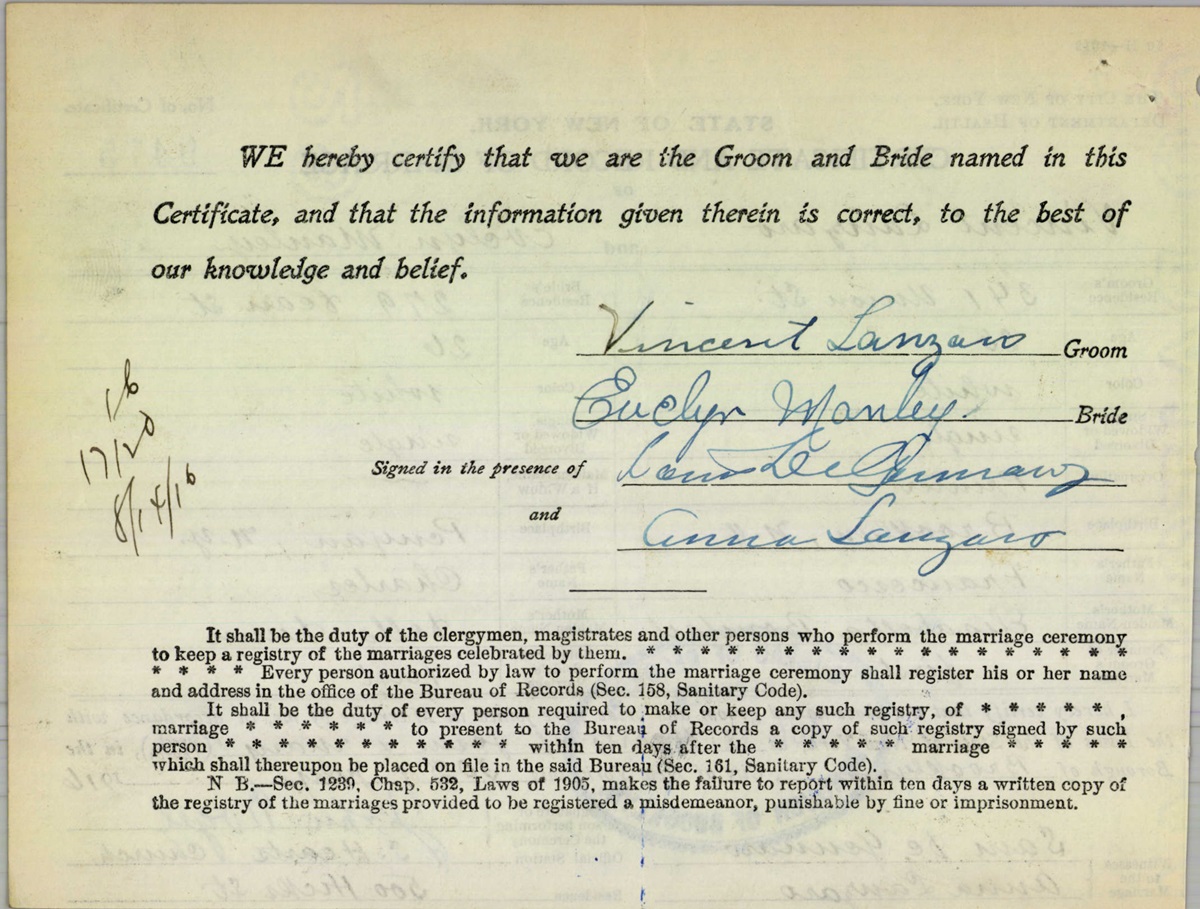 WE hereby certify that we are the Groom and Bride named in this
Certificate, and that the information given therein is correct, to the best of
our knowledge and belief.
Vincent Lanzaro Groom
Evelyn Manley Bride
Signed in the presence of Louis De
and
Anna Lanzaro
16
17/20
8/14/16
It shall be the duty of the clergymen, magistrates and other persons who perform the marriage ceremony
to keep a registry of the marriages celebrated by them. * * * * * * * * * * * * * * * * * *
* * * * Every person authorized by law to perform the marriage ceremony shall register his or her name
and address in the office of the Bureau of Records (Sec. 158, Sanitary Code).
It shall be the duty of every person required to make or keep any such registry, of * * * * * ,
marriage * * * * * * to present to the Bureau of Records a copy of such registry signed by such
person * * * * * * * * * * * within ten days after the * * * * * marriage * * * * *
which shall thereupon be placed on file in the said Bureau (Sec. 161, Sanitary Code).
N B.—Sec. 1239, Chap. 532, Laws of 1905, makes the failure to report within ten days a written copy of
the registry of the marriages provided to be registered a misdemeanor, punishable by fine or imprisonment.